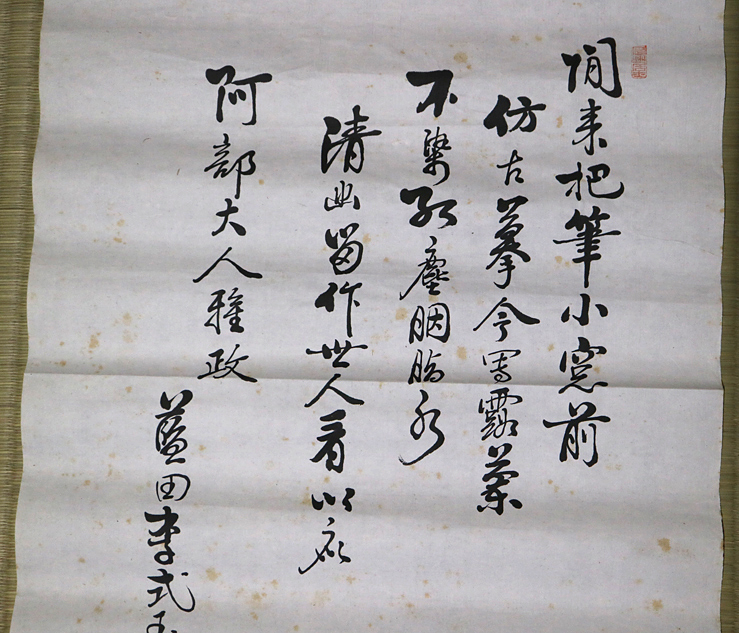 閒来把筆小窓前
仿古摹今寫露蘭
不染紅塵胭脂水
清幽留作世人看
阿部大人雅政
藍田李式玉